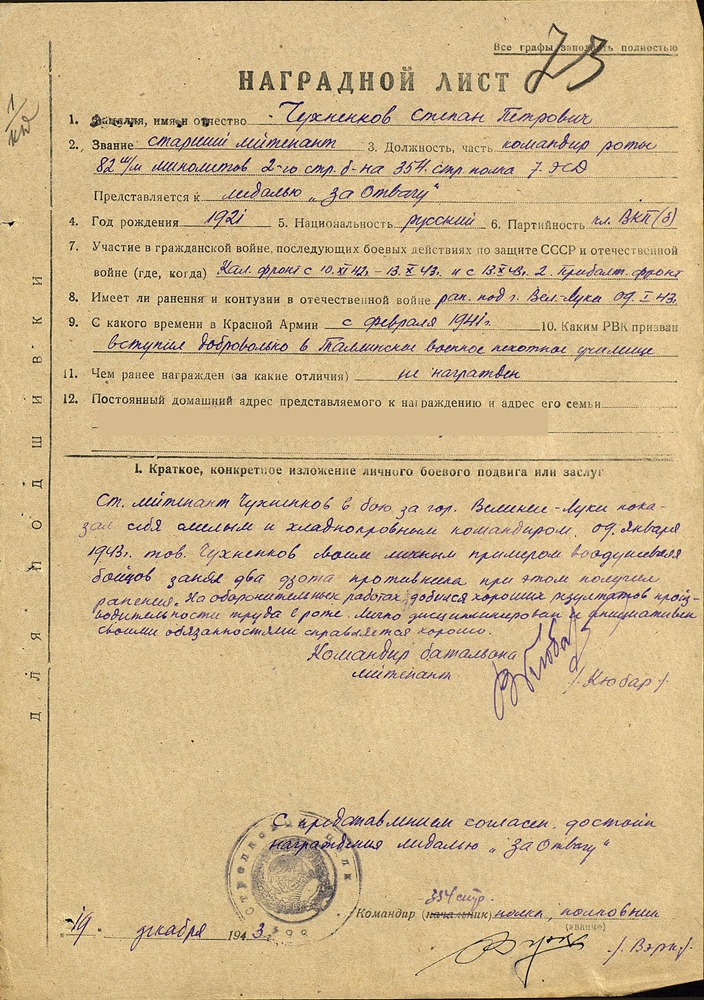 Все графы заполнять полностью
73
НАГРАДНОЙ ЛИСТ
1. Фамилия, имя и отчество Чухненков Степан Петрович
2. Звание старший лейтенант 3. Должность, часть командир роты
82 м/м минометов 2-го стр. б-на 354 стр. полка 7. ЭСД
Представляется к медалью „За Отвагу"
4. Год рождения 1921 5. Национальность русский 6. Партийность чл. ВКП(б)
7. Участие в гражданской войне, последующих боевых действиях по защите СССР и отечественной
войне (где, когда) Кал. фронт с 10.XI.42. – 13.X.43. и с 13.X.43. 2. Прибалт. фронт
8. Имеет ли ранения и контузии в отечественной войне ран. под г. Вел. Луки 09.I.43.
9. С какого времени в Красной Армии с февраля 1941 г. 10. Каким РВК призван
вступил добровольно в Таллинское военное пехотное училище
11. Чем ранее награжден (за какие отличия) не награжден
12. Постоянный домашний адрес представляемого к награждению и адрес его семьи
I. Краткое, конкретное изложение личного боевого подвига или заслуг
Ст. лейтенант Чухненков в бою за гор. Великие-Луки пока-
зал себя смелым и хладнокровным командиром. 09. Января
1943 г. тов. Чухненков своим личным примером воодушевляя
бойцов занял два дзота противника при этом получил
ранения. На оборонительных работах добился хороших результатов произ-
водительности труда в роте. Лично дисциплинирован и инициативен
своими обязанностями справляется хорошо.
Командир батальона
лейтенант /Кюбар/
С представлением согласен. достоин
награждения медалью „За Отвагу"
354 стр.
Командир (начальник) полка, полковник
(звание)
19 декабря 1943 г.
/Вэрк/
ДЛЯ ПОДШИВКИ